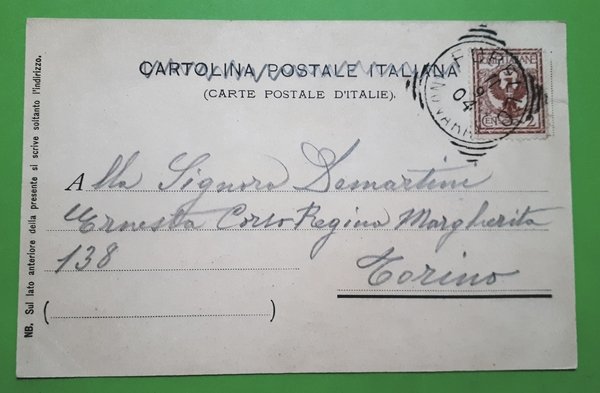 CARTOLINA POSTALE ITALIANA
(CARTE POSTALE D'ITALIE).
Alla Signora Demartini
Ernesta Corso Regina Margherita
138
Torino
NB. Sul lato anteriore della presente si scrive soltanto l'indirizzo.
04